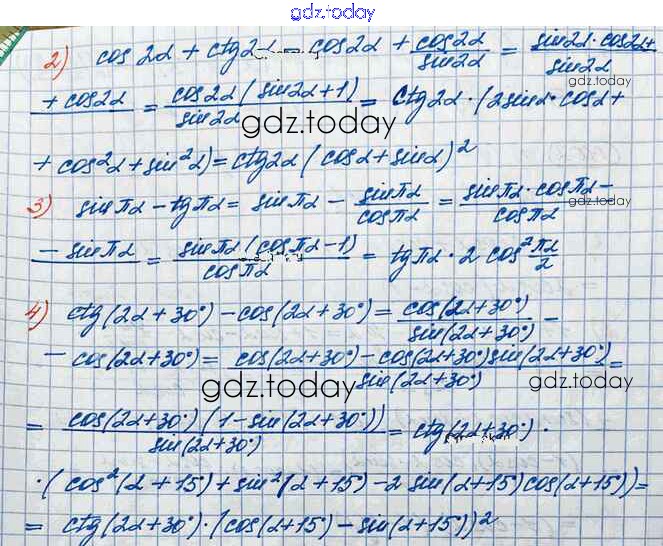 gdz.today
2) cos 2α + ctg 2α = cos 2α + cos2α/sin2α = sin2α·cos2α+/sin2α
+ cos2α/ = cos2α(sin2α+1)/sin2α = ctg2α·(2sinα·cosα+
gdz.today
gdz.today
+ cos²α + sin²α) = ctg2α(cosα+sinα)²
3) sinπα − tgπα = sinπα − sinπα/cosπα = sinπα·cosπα−/cosπα
gdz.today
− sinπα/ = sinπα(cosπα−1)/cosπα = tgπα·2 cos² πα/2
4) ctg(2α+30°) − cos(2α+30°) = cos(2α+30°)/sin(2α+30°) −
− cos(2α+30°) = cos(2α+30°) − cos(2α+30°)sin(2α+30°)/sin(2α+30°) =
gdz.today
gdz.today
= cos(2α+30°)(1−sin(2α+30°))/sin(2α+30°) = ctg(2α+30°)·
·(cos²(α+15)+sin²(α+15)−2 sin(α+15)cos(α+15))=
= ctg(2α+30°)·(cos(α+15)−sin(α+15))²